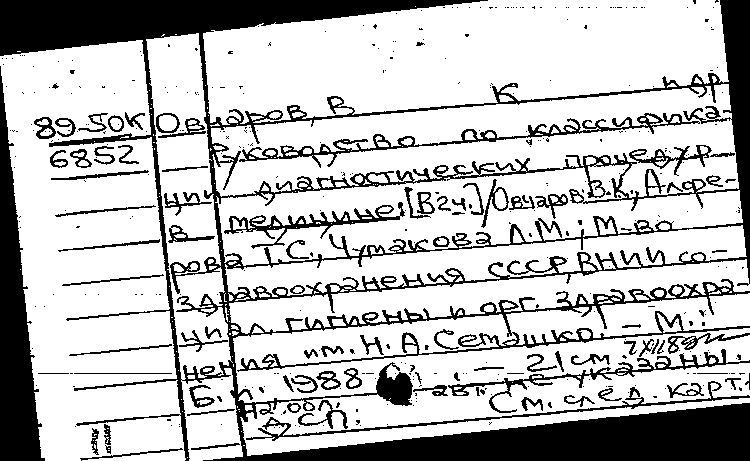 89-50К Овчаров, В К и др
6852 Руководство по классифика-
ции диагностических процедур
в медицине: [В 2 ч.] / Овчаров В.К., Алфе-
рова Т.С., Чумакова Л.М.; М-во
здравоохранения СССР, ВНИИ со-
циал. гигиены и орг. здравоохра-
нения им. Н. А. Семашко. - М.:
Б. и. 1988 . — 21 см.
авт. не указаны.
СП. См. след. карт.